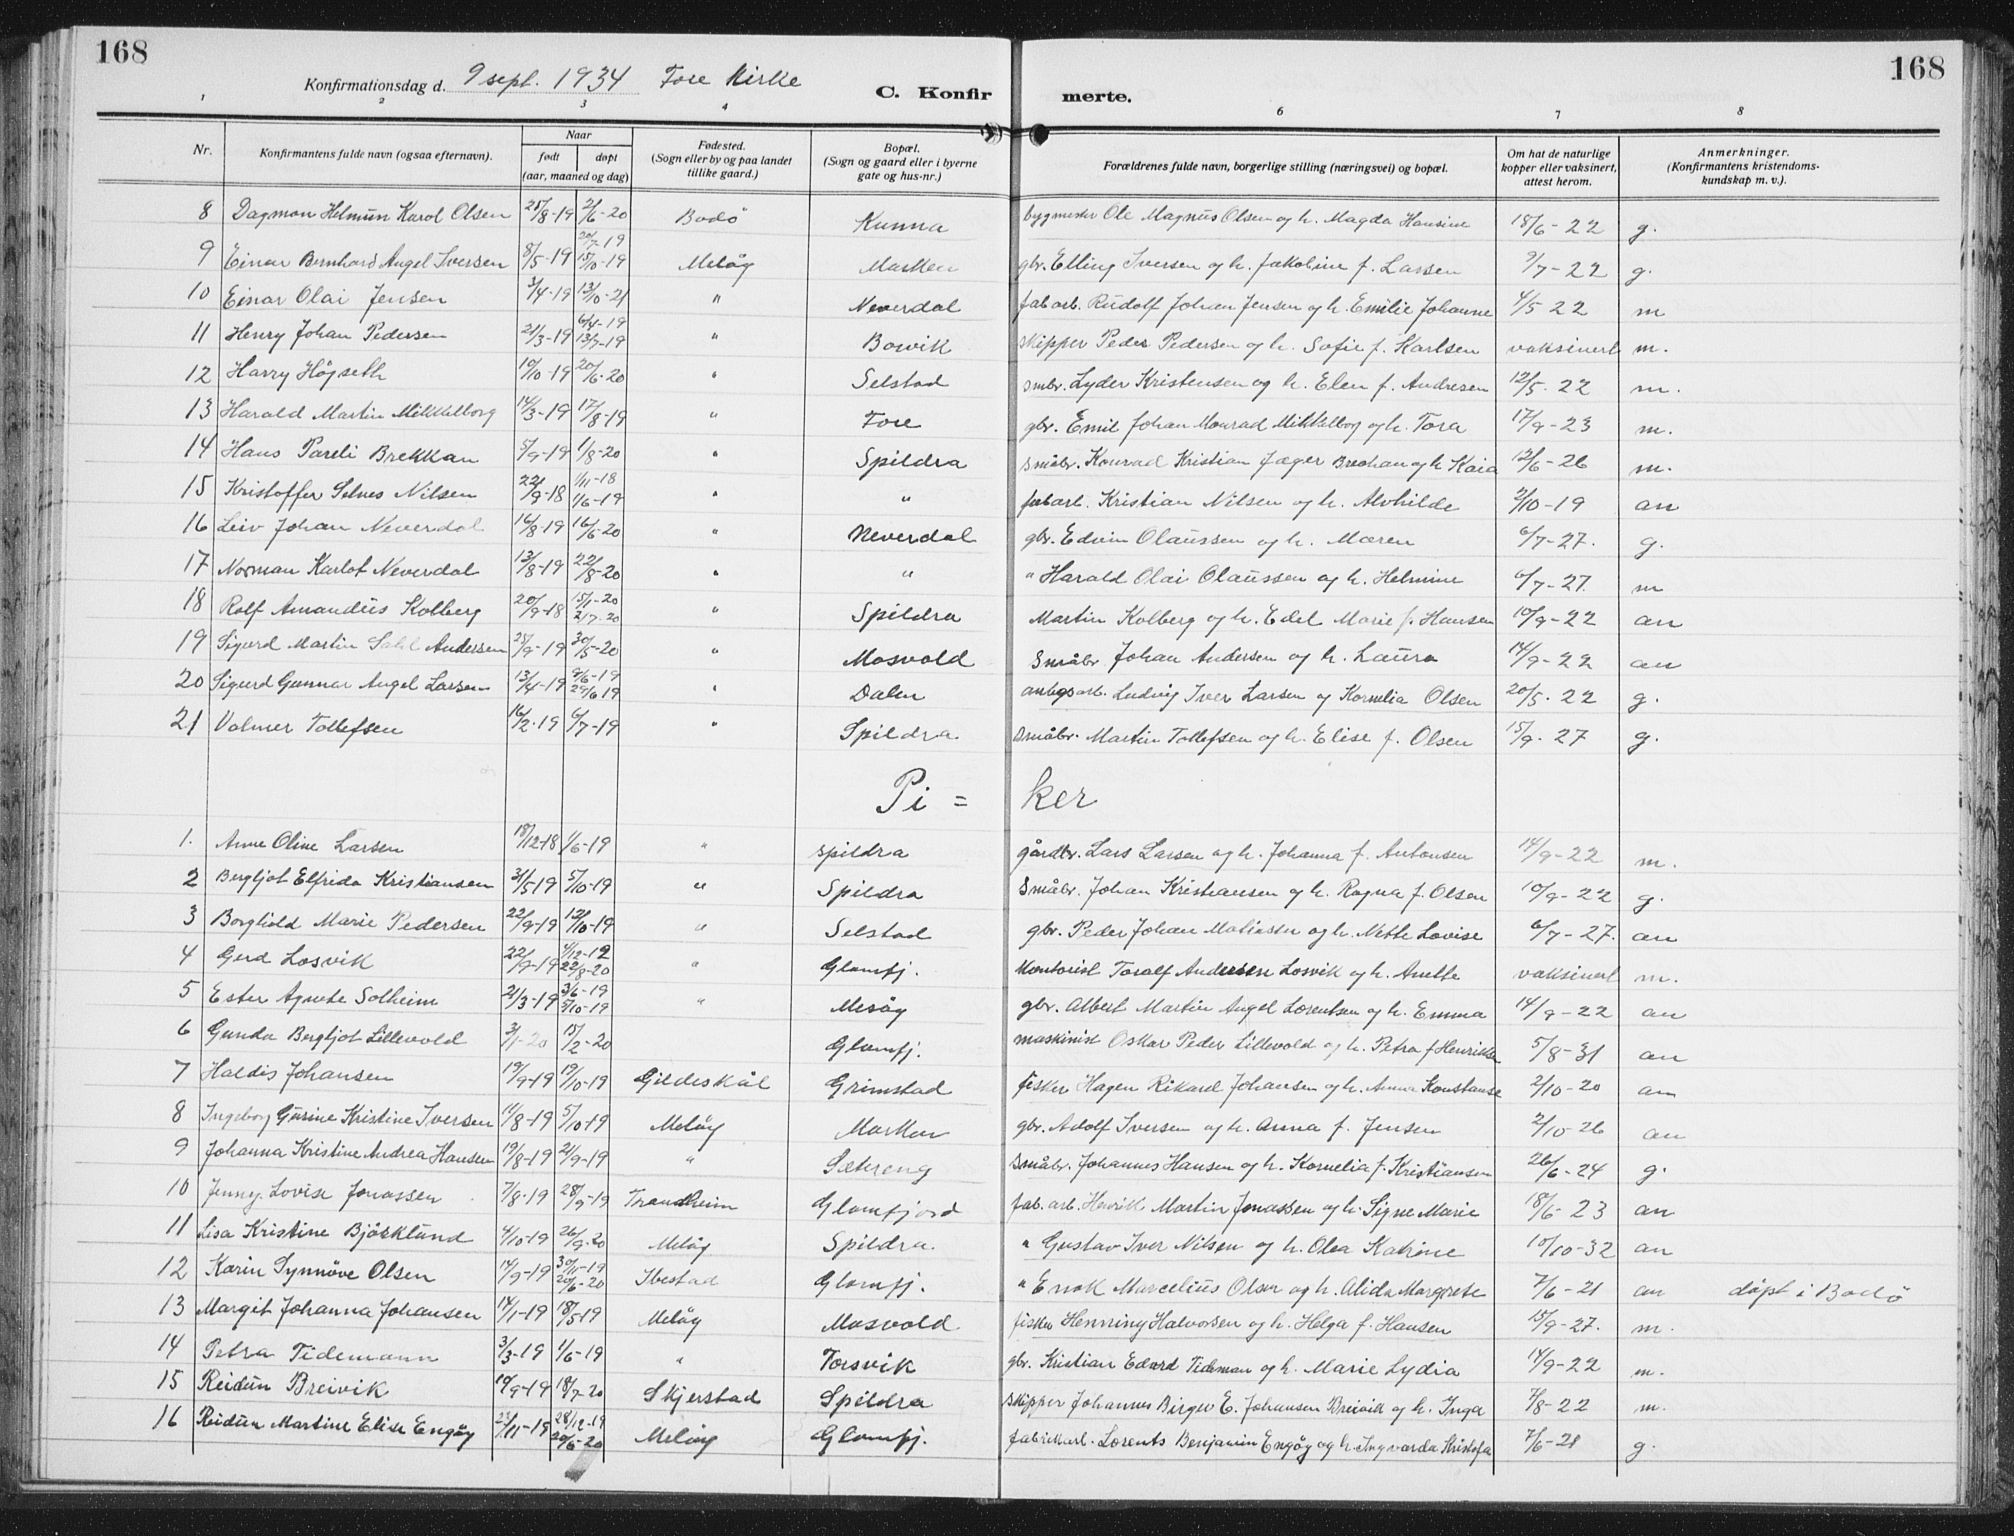 168
168
Konfirmationsdag d. 9 sept. 1934 Fore Kirke
C. Konfirmerte.
1 2 3 4 6 7 8
Nr.
Konfirmantens fulde navn (ogsaa efternavn).
Naar
født døpt
(aar, maaned og dag)
Fødested.
(Sogn eller by og paa landet
tillike gaard.)
Bopæl.
(Sogn og gaard eller i byerne
gate og hus-nr.)
Forældrenes fulde navn, borgerlige stilling (næringsvei) og bopæl.
Om hat de naturlige
kopper eller vaksinert,
attest herom.
Anmerkninger.
(Konfirmantens kristendoms-
kundskap m. v.).
8 Dagmon Helmün Karol Olsen 25/8-19 2/6-20 Bodö Kunna bygmester Ole Magnüs Olsen og h. Magda Hansine 18/6-22 g.
9 Einar Bernhard Angel Iversen 8/5-19 20/7-19 15/10-19 Melöy Marken gbr. Elling Iversen og h. Jakobine f. Larsen 9/7-22 g.
10 Einar Olai Jensen 3/4-19 13/10-21 " Neverdal fab arb. Rüdolf Johan Jensen og h. Emilie Johanne 4/5 22 m
11 Henry Johan Pedersen 21/3-19 6/4-19 13/7-19 " Bosvik skipper Peder Pedersen og h. Sofie f. Karlsen vaksinert m.
12 Harry Högseth 10/10-19 20/6-20 " Selstad smbr. Lyder Kristensen og h. Elen f. Andresen 12/5-22 m.
13 Harald Martin Mikkelborg 14/3-19 17/8-19 " Fore gbr. Emil Johan Monrad Mikkelborg og h. Tora 17/9-23 m.
14 Hans Pareli Brekkan 5/9-19 1/8-20 " Spildra småbr. Konrad Kristian Jæger Brechan og h Kaia 12/6-26 m.
15 Kristoffer Selnes Nilsen 22/9-18 1/11-18 1/6-19 " " fabarb. Kristian Nilsen og h. Alvhilde 2/10-19 an
16 Leiv Johan Neverdal 16/8-19 16/6-20 " Neverdal gbr. Edvin Olaüssen og h. Maren 6/7-27. g.
17 Norman Karlot Neverdal 13/8-19 22/8-20 " " " Harald Olai Olaüssen og h. Helmine 6/7-27. m
18 Rolf Amandüs Kolberg 20/9-18 15/1-20 2/7-20 " Spildra Martin Kolberg og h. Edel Marie f. Hansen 10/9-22 an
19 Sigurd Martin Sahl Andersen 25/9-19 30/5-20 " Mosvold Småbr Johan Andersen og h. Laura 14/9-22 an
20 Sigurd Gunnar Angel Larsen 13/4-19 9/6-19 29/6 19 " Dalen anlegsarb. Ludvig Iver Larsen og Kornelia Olsen 20/5-22 g.
21 Valmer Tollefsen 16/2-19 6/7-19 " Spildra småbr. Martin Tollefsen og h. Elise f. Olsen 15/9-27 g.
Pi = ker
1. Anne Oline Larsen 18/12-18 1/6-19 " spildra gårdbr. Lars Larsen og h. Johanna f. Antonsen 14/9-22 m.
2 Bergljot Elfrida Kristiansen 31/5-19 5/10-19 " Spildra Småbr. Johan Kristiansen og h. Ragna f. Olsen 10/9-22 g.
3 Borghild Marie Pedersen 22/9-19 12/10-19 " Selstad gbr. Peder Johan Matiassen og h. Nette Lovise 6/7-27. an
4 Gerd Losvik 22/9-19 4/12-19 22/8-20 " Glomfj. Kontorist Toralf Andersen Losvik og h. Anette vaksinert m.
5 Ester Agnete Solheim 21/3-19 3/6-19 5/10-19 " Mesöy gbr. Albert Martin Angel Lorentsen og h. Emma 14/9-22 an
6 Gunda Bergljot Lillevold 3/1-20 15/2-20 Glomfj. maskinist Oskar Peder Lillevold og h. Petra f Henriksen 5/8-31 an
7 Haldis Johansen 19/9-19 19/10-19 Gildeskål Grimstad fisker Hagen Rikard Johansen og h. Anna Konstanse 2/10-20 an
8 Ingeborg Gürine Kristine Iversen 11/8-19 5/10-19 Melöy Marken gbr. Adolf Iversen og h. Anna f. Jensen 2/10-26 an
9 Johanna Kristine Andrea Hansen 19/8-19 21/9-19 " Sætreng småbr. Johannes Hansen og h. Kornelia f. Kristiansen 26/6-24 g.
10 Jenny Lovise Jonassen 7/8-19 28/9-19 Trondheim Glomfjord fab. arb. Henrik Martin Jonassen og h. Signe Marie 18/6-23 an
11 Lisa Kristine Bjöšklund 4/10-19 26/9-20 Melöy Spildra. " Gustav Iver Nilsen og h. Olea Katrine 10/10-32 an
12 Karin Synnöve Olsen 14/9-19 30/11-19 20/6-20 Ibestad Glomfj. " Enok Marcelius Olsen og h. Alida Margrete 7/6-21 an döpt i Bodö
13 Margit Johanna Johansen 14/1-19 18/5-19 Melöy Mosvold fisker Henning Halvorsen og h. Helga f. Hansen 15/9-27. m.
14 Petra Tidemann 3/3-19 1/6-19 " Torsvik gbr. Kristian Edvard Tideman og h. Marie Lydia 14/9-22 m.
15 Reidün Breivik 14/9-19 18/7-20 Skjerstad Spildra skipper Johannes Birger E. Johansen Breivik og h. Inga 7/8-22 m.
16 Reidün Martine Elise Engöy 23/11-19 28/12-19 20/6-20 Melöy Glomfj. fabrikarb. Lorents Benjamin Engöy og h. Ingvarda Kristofa 7/6-21 g.